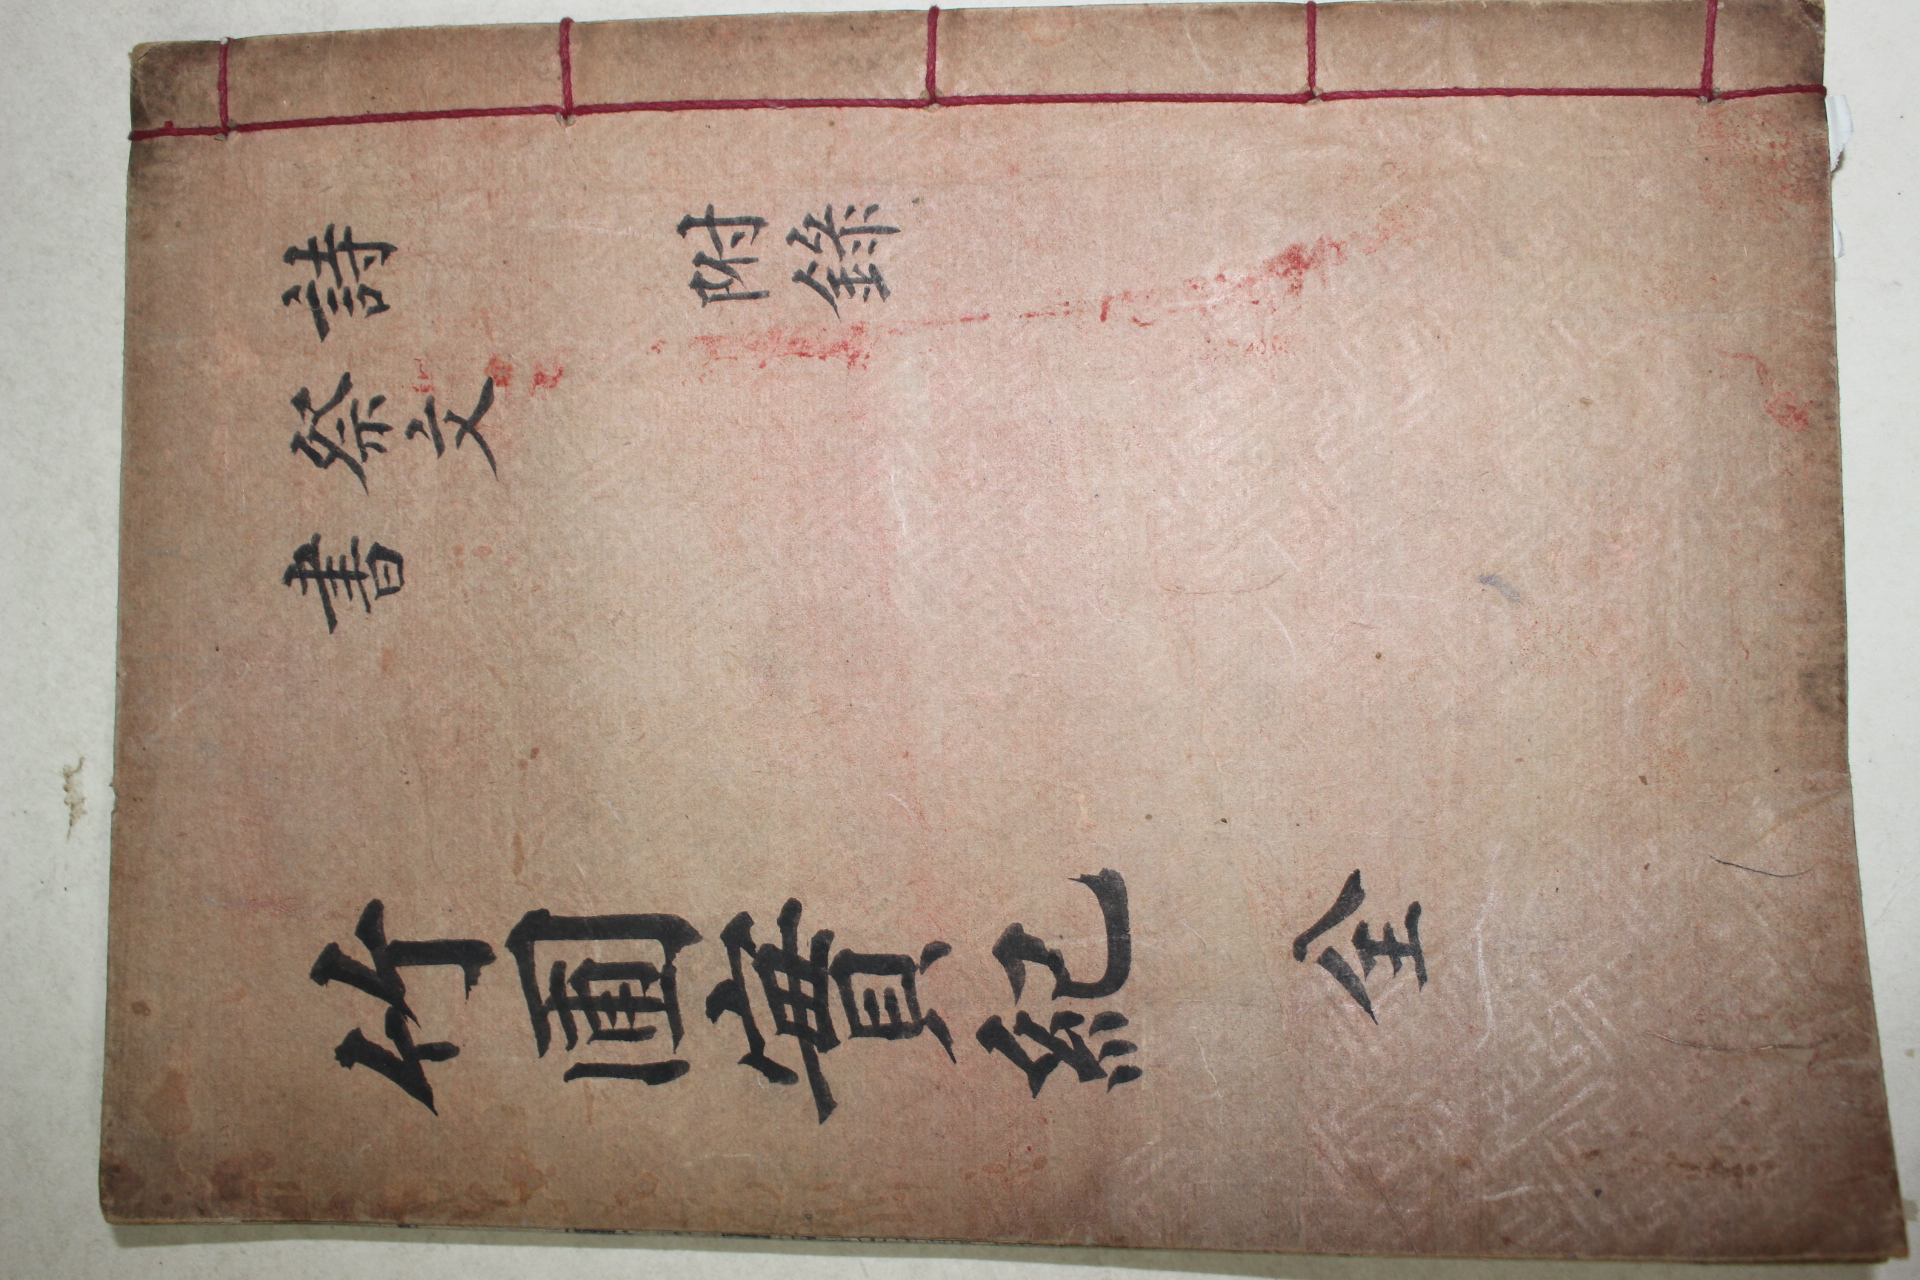 詩
祭文
書
附錄
竹圃實紀 全